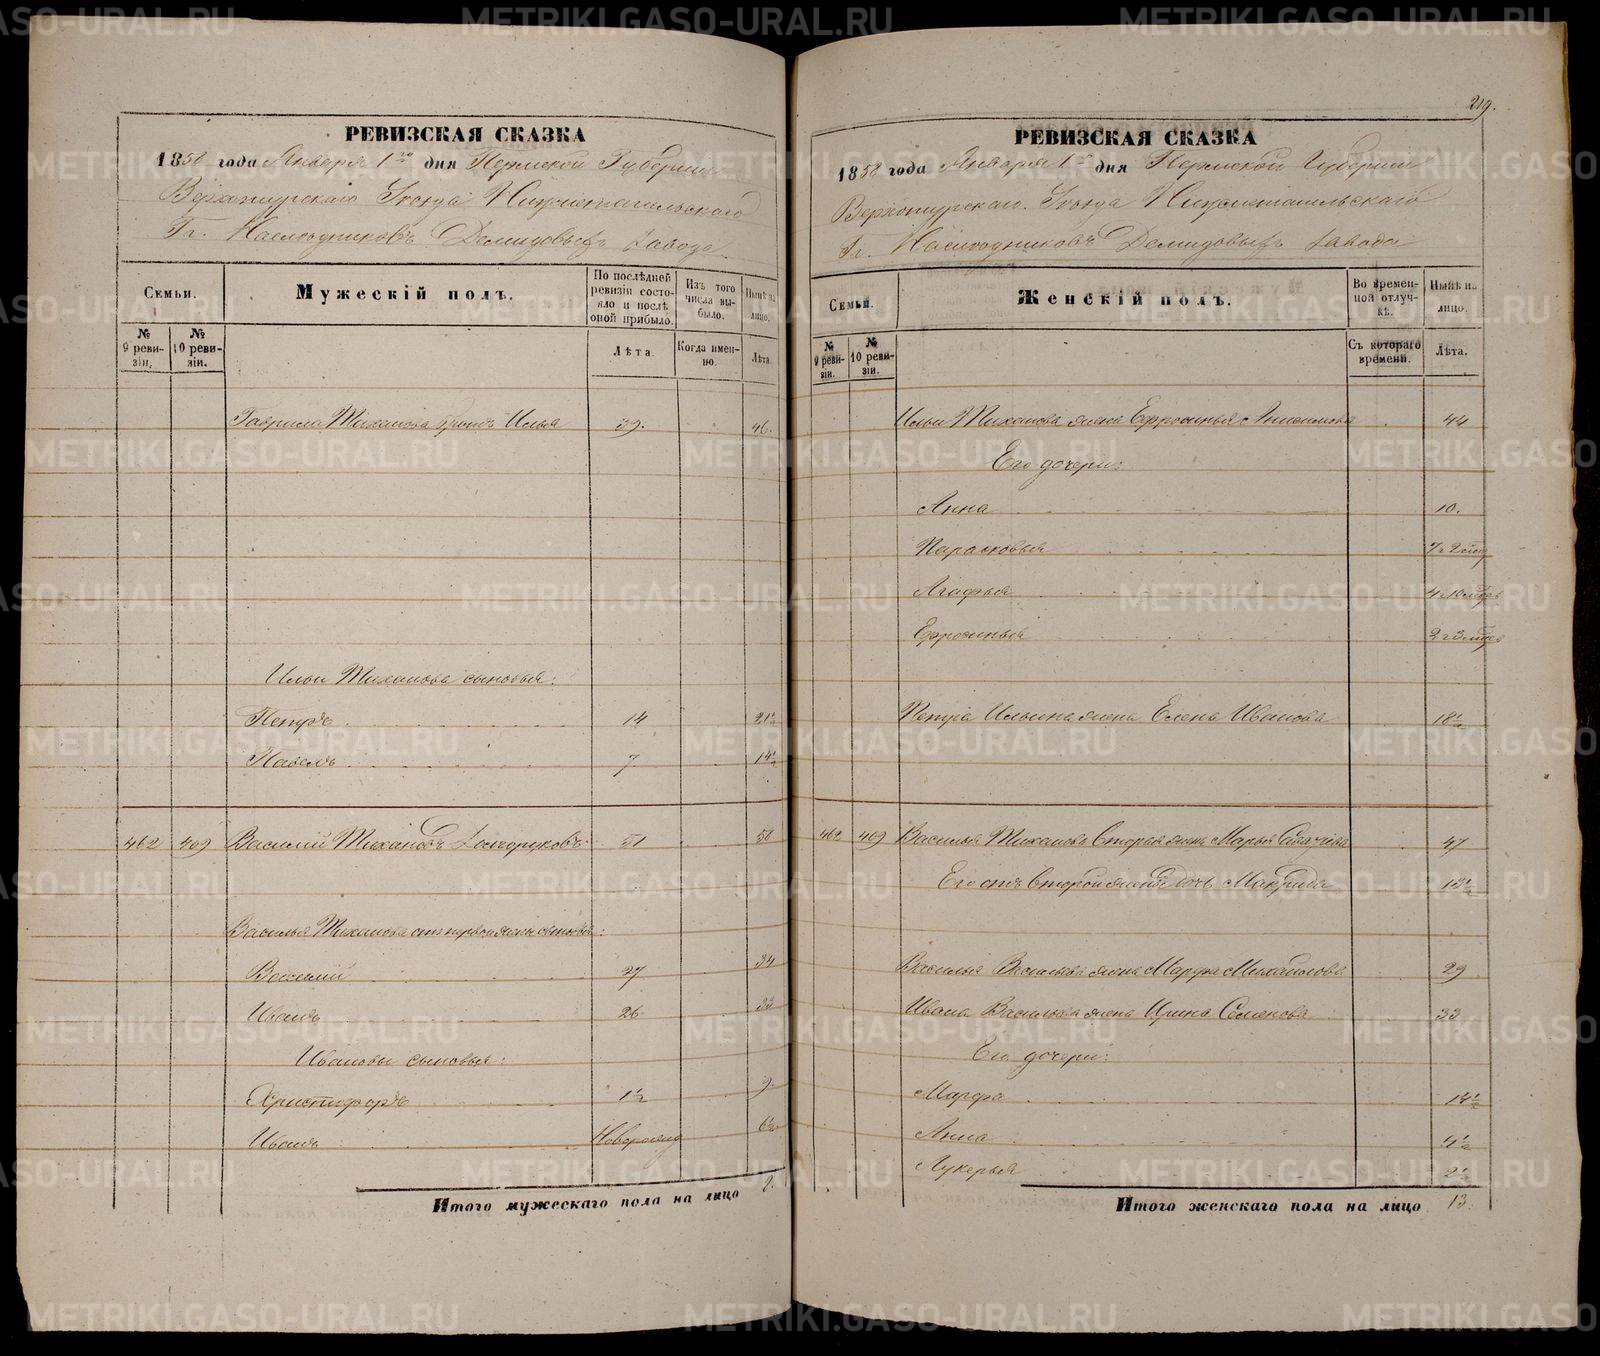 РЕВИЗСКАЯ СКАЗКА
1858 года Января 1го дня Пермской Губернии
Верхотурского Уезда Нижнетагильского
Гг. Наследниковъ Демидовыхъ завода
Семьи.
Мужескій полъ.
По послѣдней ревизіи состояло и послѣ оной прибыло.
Изъ того числа выбыло.
Нынѣ на лицо.
№ 9 ревизіи.
№ 10 ревизіи.
Лѣта.
Когда именно.
Лѣта.
Гаврила Тиханова братъ Илья 39. 46.
Ильи Тиханова сыновья:
Петръ 14 21½
Павелъ 7 14½
462 409 Василій Тихановъ Долгоруковъ 51 58
Василья Тиханова отъ первой жены сыновья:
Василій 27 34
Иванъ 26 33
Ивановы сыновья:
Христофоръ 1½ 9.
Иванъ Новорожд 6½
Итого мужескаго пола на лицо 8.
219.
РЕВИЗСКАЯ СКАЗКА
1858 года Января 1го дня Пермской Губернии
Верхотурскаго Уезда Нижнетагильскаго
Гг. Наследниковъ Демидовыхъ завода
Семьи.
Женскій полъ.
Во временной отлучкѣ.
Нынѣ на лицо.
№ 9 ревизіи.
№ 10 ревизіи.
Съ котораго времени.
Лѣта.
Ильи Тиханова жена Ефросинья Анисимова 44
Его дочери:
Анна 10.
Парасковья
Агафья
Ефросинья
Петра Ильина жена Елена Иванова 18½
462 409 Василья Тиханова вторая жена Марья 47
Его отъ второй жены дочь Макрида 13½
Василья Васильева жена Марфа Михайлова 29
Ивана Васильева жена Ирина Семенова 33
Его дочери:
Марфа 14½
Анна 4½
Лукерья 2½
Итого женскаго пола на лицо 13.
METRIKI.GASO-URAL.RU